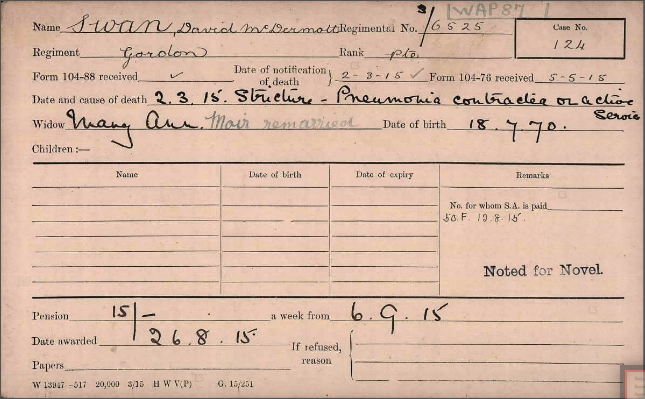 WAP87
Name Swan, David McDermott Regimental No. 3/6525 Case No. 124
Regiment Gordon Rank Pte.
Form 104-88 received ✓ Date of notification of death } 2-3-15 ✓ Form 104-76 received 5-5-15
Date and cause of death 2.3.15. Stricture - Pneumonia contracted on active Service
Widow Mary Ann. Moir remarried Date of birth 18.7.70.
Children :—
Name Date of birth Date of expiry Remarks
No. for whom S.A. is paid
19.8.15.
Noted for Novel.
Pension 15/- a week from 6.9.15
Date awarded 26.8.15. If refused, reason {
Papers
W 13947 —517 20,000 3/15 H W V(P) G. 15/251